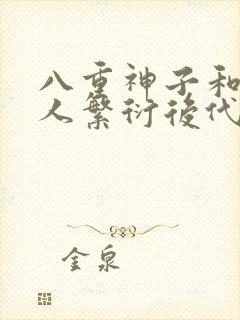 八重神子和
人繁衍後代
金泉